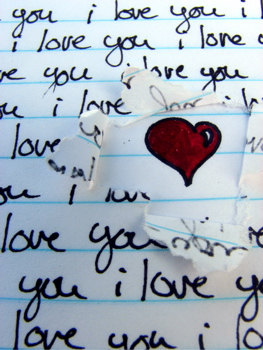 you i love you i l
i love you i love
you i love you
love you i lo
love
you i lo
love you
you i love y
love you i lo